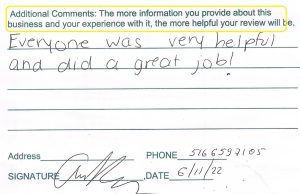 Additional Comments: The more information you provide about this
business and your experience with it, the more helpful your review will be.
Everyone was very helpful
and did a great job!
Address PHONE 5166597105
SIGNATURE DATE 6/11/22